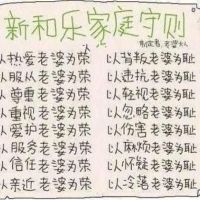 新和乐家庭守则
制定者：老婆大人
以热爱老婆为荣 以背叛老婆为耻
以服从老婆为荣 以违抗老婆为耻
以尊重老婆为荣 以轻视老婆为耻
以重视老婆为荣 以忽略老婆为耻
以爱护老婆为荣 以伤害老婆为耻
以服务老婆为荣 以麻烦老婆为耻
以信任老婆为荣 以怀疑老婆为耻
以亲近老婆为荣 以冷落老婆为耻